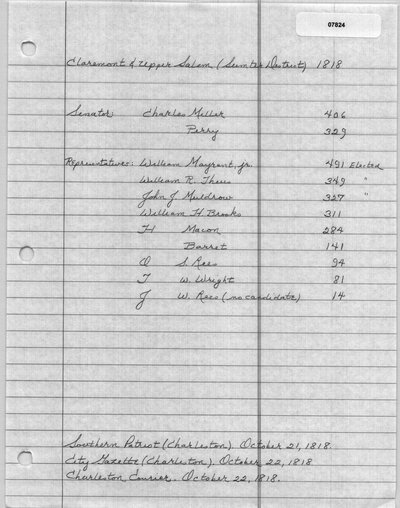 07824
Claremont & Upper Salem (Sumter District) 1818
Senator: Charles Miller 406
Perry 329
Representatives: William Mayrant, jr. 491 Elected
William R. Theus 349 "
John J. Muldrow 327 "
William H. Brooks 311
H Macon 284
Barret 141
O S. Rees 94
T W. Wright 81
J W. Rees (no candidate) 14
Southern Patriot (Charleston). October 21, 1818.
City Gazette (Charleston). October 22, 1818
Charleston Courier. October 22, 1818.